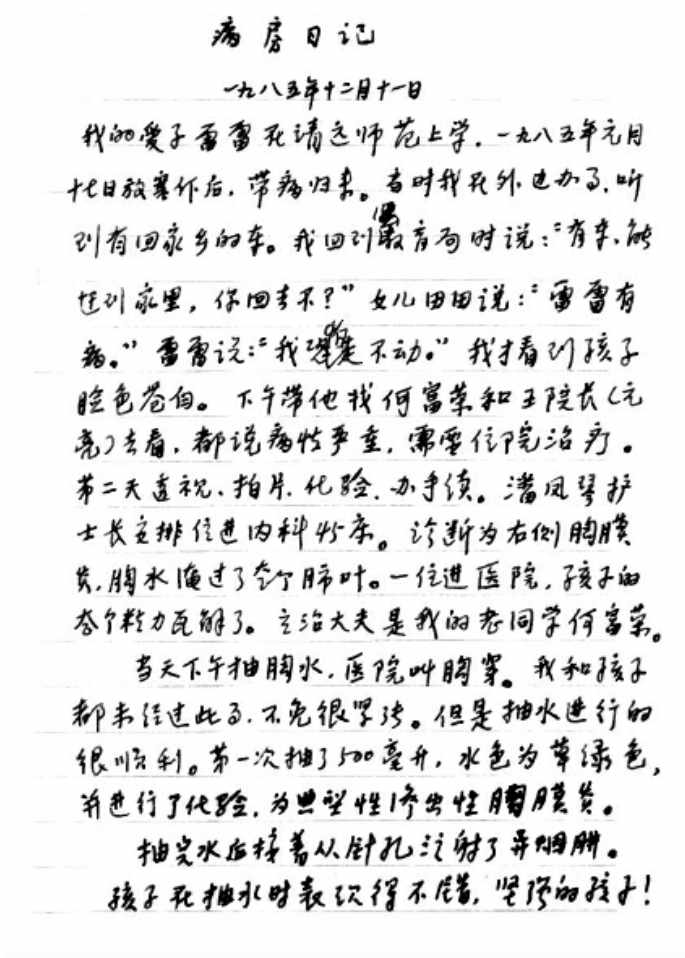 病房日记
一九八五年十二月十一日
我的爱子雷雷在清远师范上学．一九八五年元月
十七日放寒假后，带病归来。当时我在外边办事，听
到有回家乡的车。我回到教育局时说：“有车，能
送到家里，你回去不？”女儿田田说：“雷雷有
病。”雷雷说：“我走不动。”我才看到孩子
脸色苍白。下午带他找何富荣和王院长（元
亮）去看，都说病情严重，需要住院治疗。
第二天透视、拍片、化验、办手续。潘凤琴护
士长安排住进内科45床。诊断为右侧胸膜
炎，胸水淹过了叶。一住进医院，孩子的
力瓦解了。主治大夫是我的老同学何富荣。
当天下午抽胸水，医院叫胸穿。我和孩子
都未经过此事，不免很紧张。但是抽水进行的
很顺利。第一次抽了500毫升，水色为草绿色，
并进行了化验，为典型性渗出性胸膜炎。
抽完水后接着从针孔注射了异烟肼。
孩子在抽水时表现得不错，坚强的孩子！